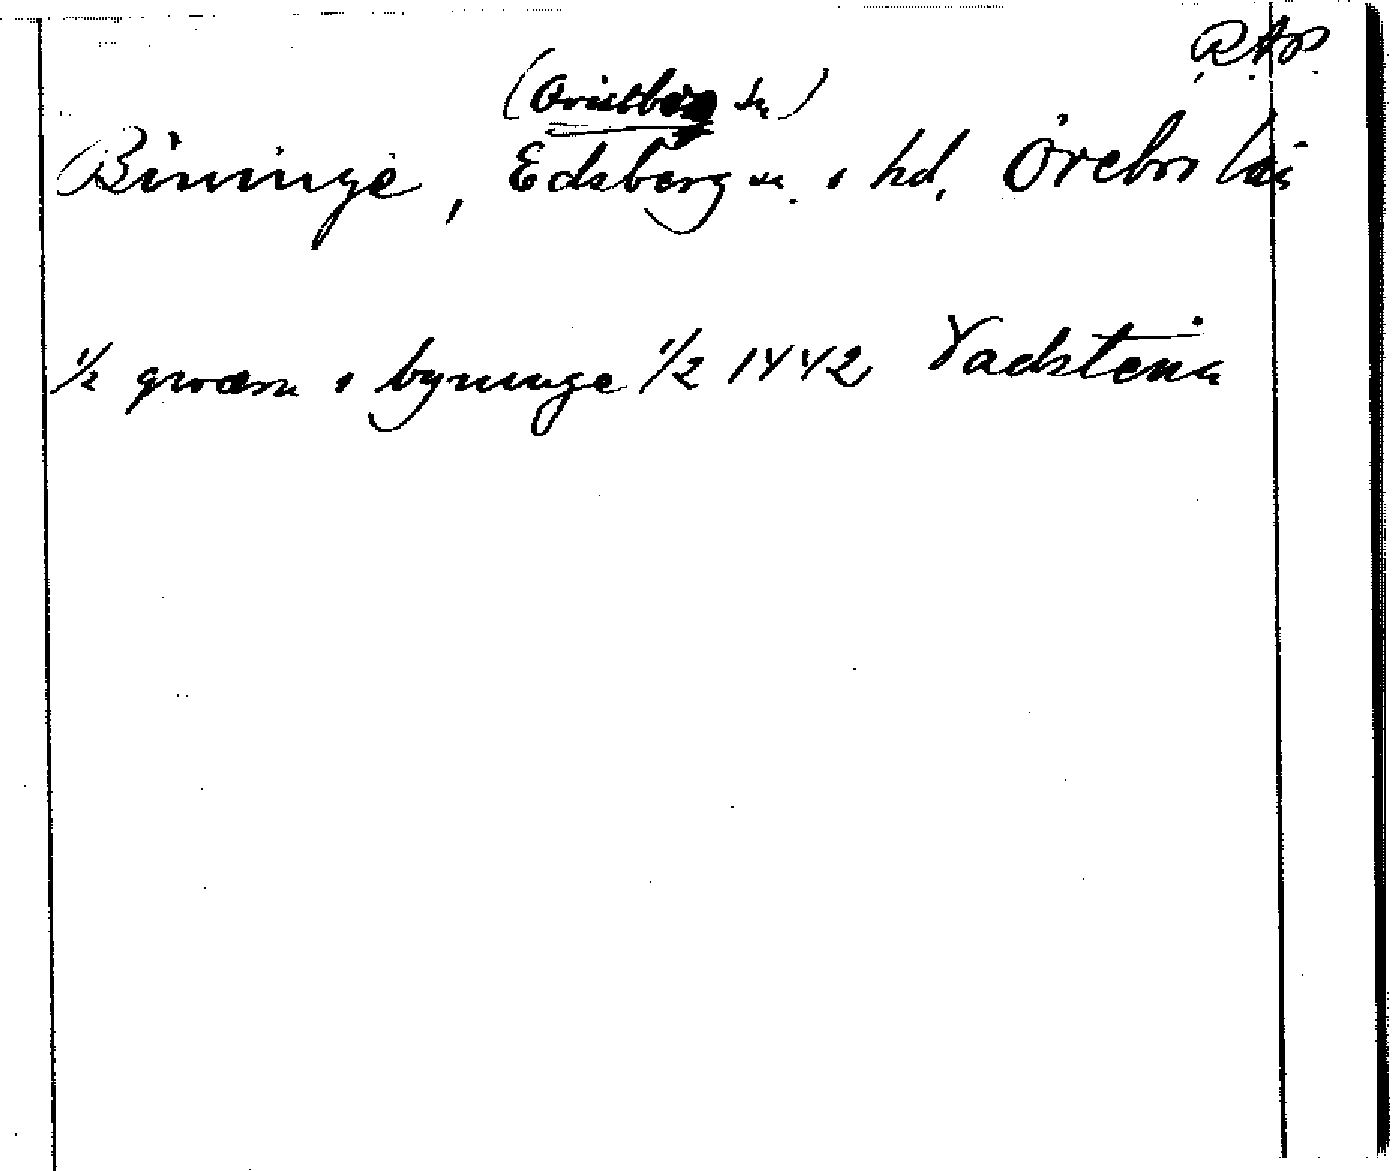 R.A.P.
(Qvistbro sn)
Bininge, Edsberg sn. o hd. Örebro län
1/2 qwærn i byninge 1/2 1442 Vadstena